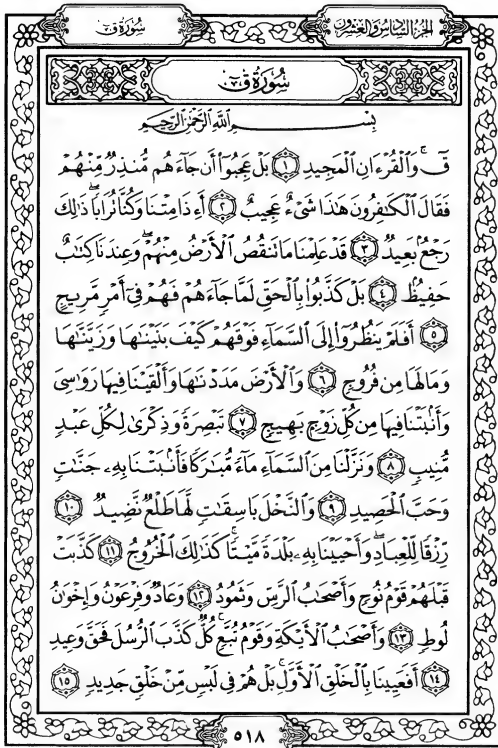 سُورَةُ ق
الجُزءُ السَّادِسُ وَالعِشرُونَ
سُورَةُ ق
بِسْمِ اللَّهِ الرَّحْمَٰنِ الرَّحِيمِ
قٓ ۚ وَٱلْقُرْءَانِ ٱلْمَجِيدِ ١ بَلْ عَجِبُوٓا۟ أَن جَآءَهُم مُّنذِرٌ مِّنْهُمْ
فَقَالَ ٱلْكَٰفِرُونَ هَٰذَا شَىْءٌ عَجِيبٌ ٢ أَءِذَا مِتْنَا وَكُنَّا تُرَابًا ۖ ذَٰلِكَ
رَجْعٌۢ بَعِيدٌ ٣ قَدْ عَلِمْنَا مَا تَنقُصُ ٱلْأَرْضُ مِنْهُمْ ۖ وَعِندَنَا كِتَٰبٌ
حَفِيظٌۢ ٤ بَلْ كَذَّبُوا۟ بِٱلْحَقِّ لَمَّا جَآءَهُمْ فَهُمْ فِىٓ أَمْرٍ مَّرِيجٍ
٥ أَفَلَمْ يَنظُرُوٓا۟ إِلَى ٱلسَّمَآءِ فَوْقَهُمْ كَيْفَ بَنَيْنَٰهَا وَزَيَّنَّٰهَا
وَمَا لَهَا مِن فُرُوجٍ ٦ وَٱلْأَرْضَ مَدَدْنَٰهَا وَأَلْقَيْنَا فِيهَا رَوَٰسِىَ
وَأَنۢبَتْنَا فِيهَا مِن كُلِّ زَوْجٍۭ بَهِيجٍ ٧ تَبْصِرَةً وَذِكْرَىٰ لِكُلِّ عَبْدٍ
مُّنِيبٍ ٨ وَنَزَّلْنَا مِنَ ٱلسَّمَآءِ مَآءً مُّبَٰرَكًا فَأَنۢبَتْنَا بِهِۦ جَنَّٰتٍ
وَحَبَّ ٱلْحَصِيدِ ٩ وَٱلنَّخْلَ بَاسِقَٰتٍ لَّهَا طَلْعٌ نَّضِيدٌ ١٠
رِّزْقًا لِّلْعِبَادِ ۖ وَأَحْيَيْنَا بِهِۦ بَلْدَةً مَّيْتًا ۚ كَذَٰلِكَ ٱلْخُرُوجُ ١١ كَذَّبَتْ
قَبْلَهُمْ قَوْمُ نُوحٍ وَأَصْحَٰبُ ٱلرَّسِّ وَثَمُودُ ١٢ وَعَادٌ وَفِرْعَوْنُ وَإِخْوَٰنُ
لُوطٍ ١٣ وَأَصْحَٰبُ ٱلْأَيْكَةِ وَقَوْمُ تُبَّعٍ ۚ كُلٌّ كَذَّبَ ٱلرُّسُلَ فَحَقَّ وَعِيدِ
١٤ أَفَعَيِينَا بِٱلْخَلْقِ ٱلْأَوَّلِ ۚ بَلْ هُمْ فِى لَبْسٍ مِّنْ خَلْقٍ جَدِيدٍ ١٥
٥١٨